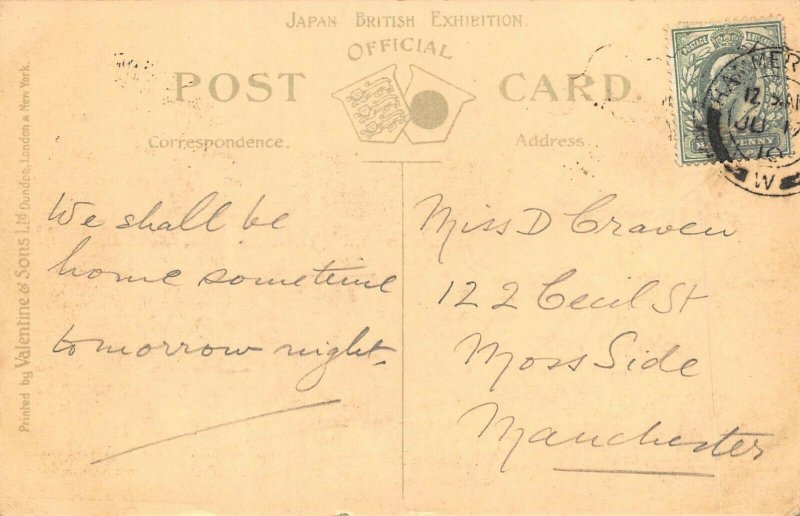 JAPAN BRITISH EXHIBITION.
OFFICIAL
POST CARD.
Correspondence.
Address.
We shall be
home sometime
tomorrow night.
Miss D Craven
122 Cecil St
Moss Side
Manchester
Printed by Valentine & Sons Ltd Dundee, London & New York.
POSTAGE & REVENUE
PENNY
12
JU 17
10
W